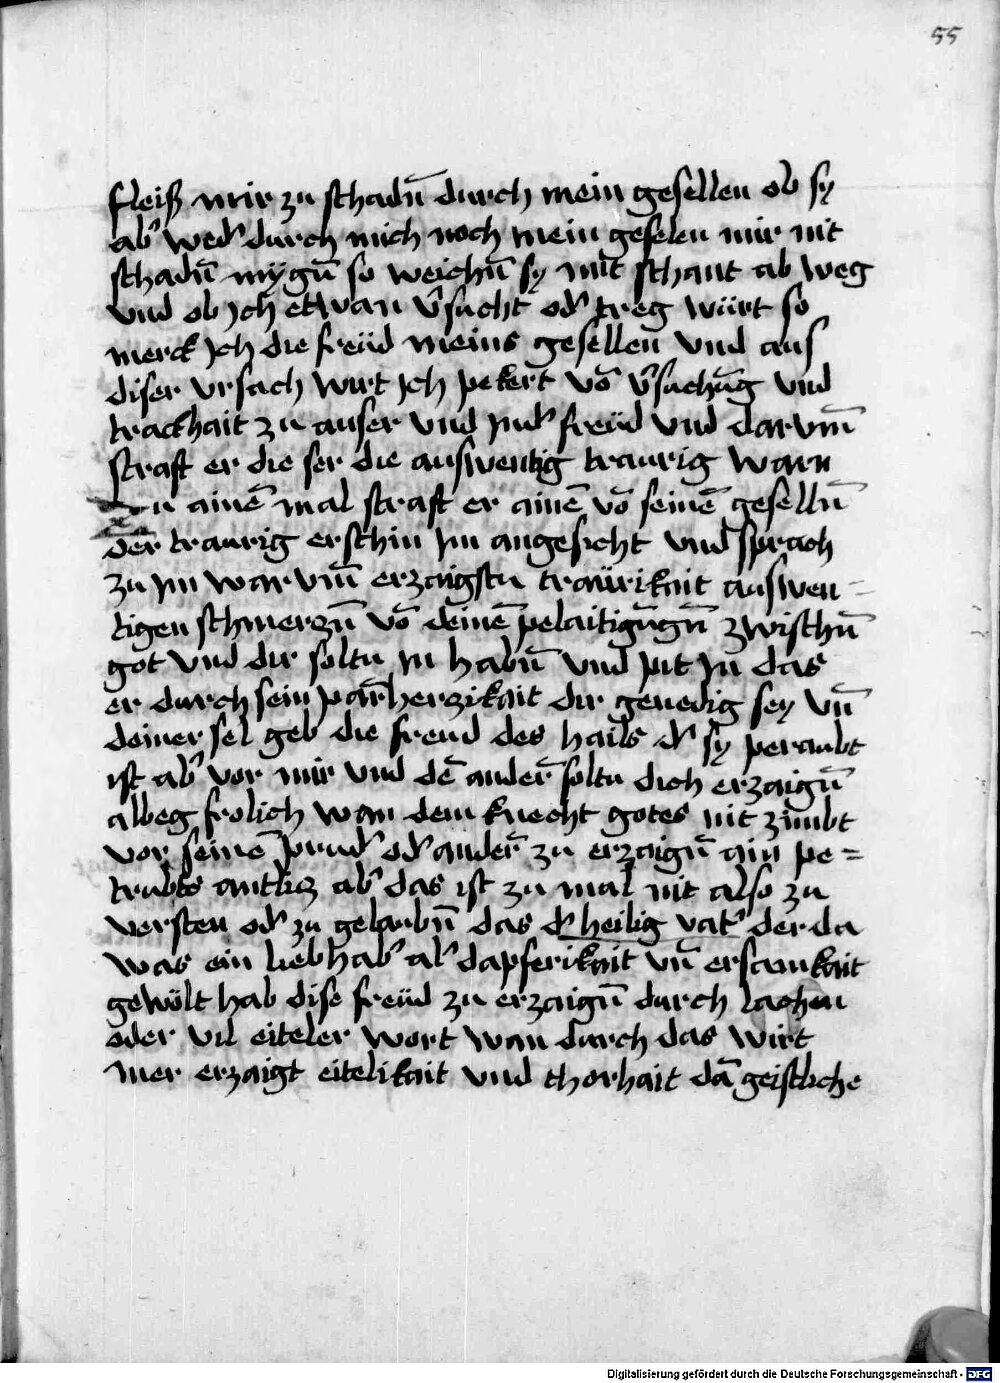 55
fleiß mir zu schadn̄ durch mein gesellen ob sy
ab' wed' durch mich noch mein geselen mir nit
schadn̄ mӱgn̄ so weichn̄ sy mit schant ab weg
vnd ob jch etwan v̄sucht od' treg würt so
merck jch die freüd meins gesellen vnd aus
diser vrsach wirt jch pekert vō v̄suchūg vnd
trackhait zu auser vnd jnd' freüd vnd darvm̄
straft er die ser die auswentig traurig warn
Zu ainē mal straft er ainē vō seinē geselln̄
der traurig erschin jm angesicht vnd sprach
zu jm warvm̄ erzaigstu traürikait auswen=
tigen schmerzn̄ vō deinē pelaitigūgn̄ zwischn̄
got vnd dir soltu jn habn̄ vnd pit jn das
er durch sein parm̄herzikait dir genedig sey vn̄
deiner sel geb die freud des hails d' sy peraubt
ist ab' vor mir vnd dē andern̄ soltu dich erzaign̄
albeg frolich wan dem knecht gotes nit zimbt
vor seinē prud' od' andern̄ zu erzaign̄ ain pe=
trubts antlicz ab' das ist zu mal nit also zu
versten od' zu gelaubn̄ das d' heilig vat' der da
was ein liebhab' al' dapferikait vn̄ ersamkait
gewölt hab dise freüd zu erzaign̄ durch lachen
oder vil eiteler wort wan durch das wirt
mer erzaigt eitelikait vnd thorhait dā geistliche
Digitalisierung gefördert durch die Deutsche Forschungsgemeinschaft - DFG